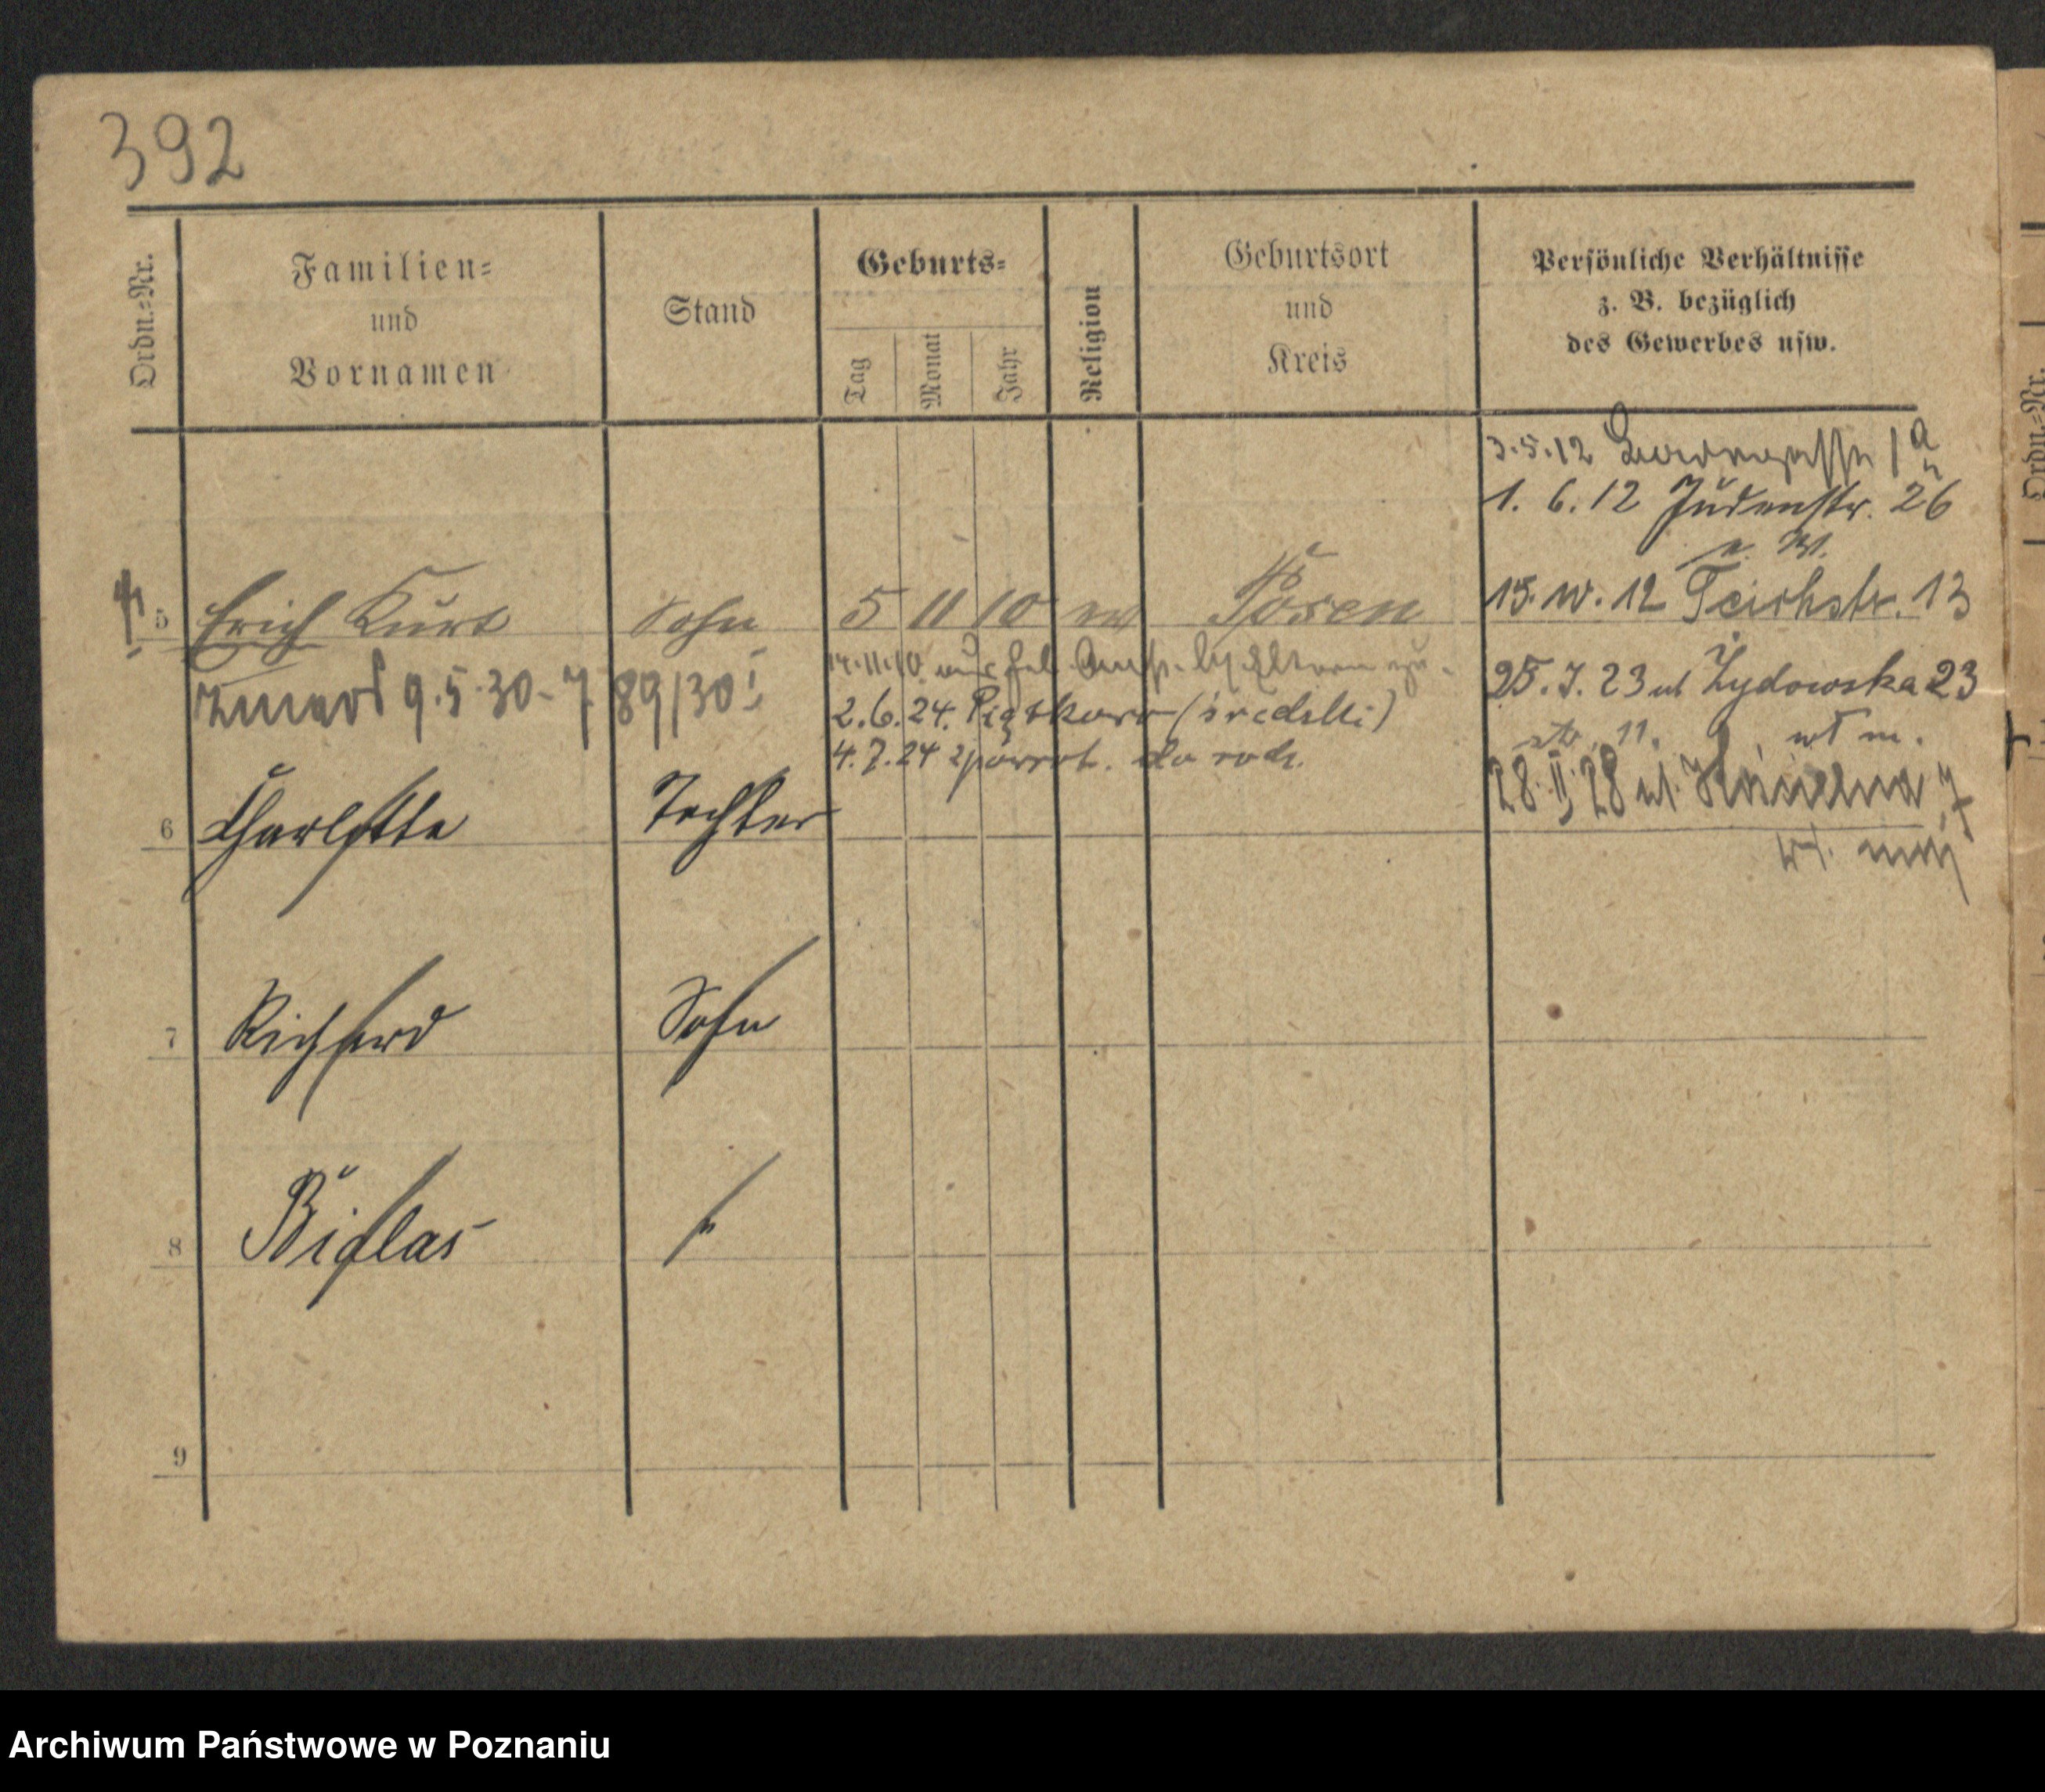 392
Ordn.-Nr.
Familien-
und
Vornamen
Stand
Geburts-
Tag
Monat
Jahr
Religion
Geburtsort
und
Kreis
Persönliche Verhältnisse
z. B. bezüglich
des Gewerbes usw.
3.5.12 1a
1. 6. 12 Judenstr. 26
n. W.
5 Erich Kurt Sohn 5 11 10 Posen
Teichstr. 13
zmarł 9.5.30 - 789/30 I
14.11.10
2.6.24. Piątkowo (średzki)
4.7.24 zpowrot. do rodz.
25.7.23 ul Żydowska 23
11. wł m.
28.II.28 ul. 7
wł.
6 Charlotte Tochter
7 Richard Sohn
8
9
Ordn.-Nr.
Archiwum Państwowe w Poznaniu